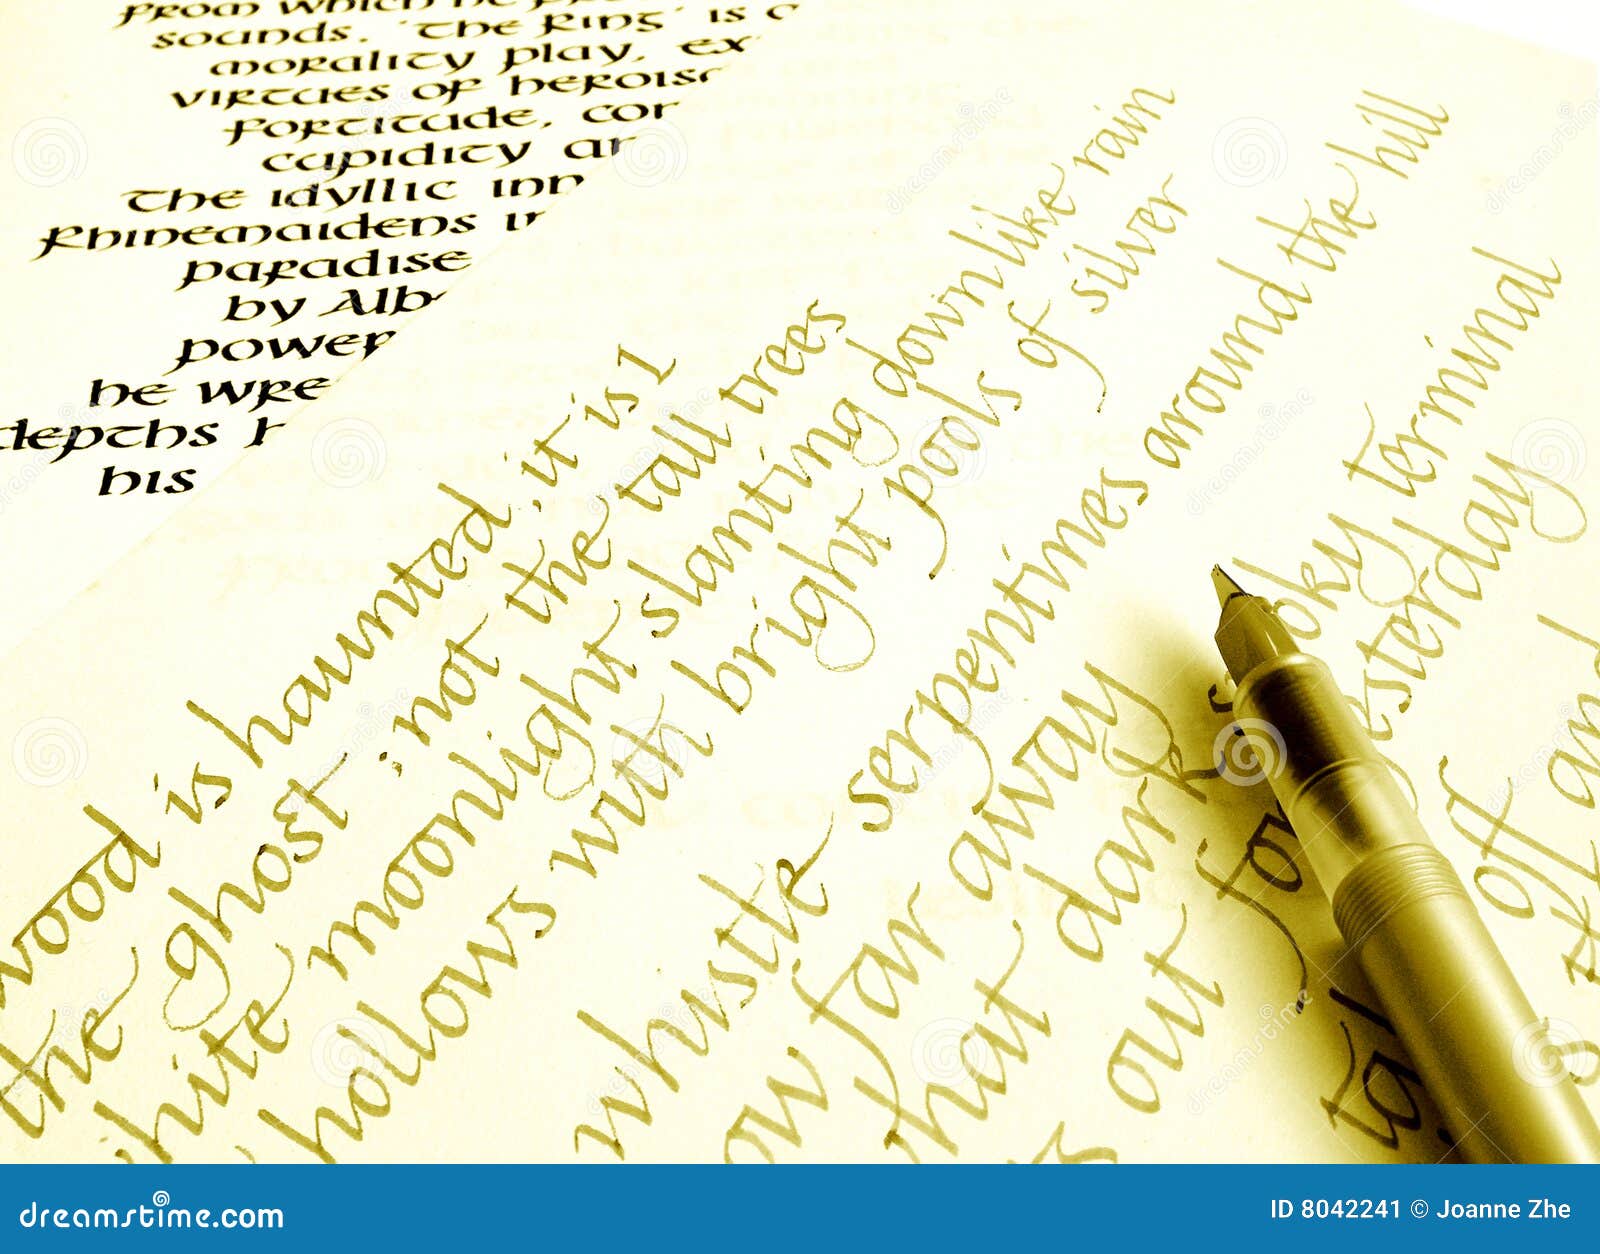 from which he
sounds. 'The Ring' is
morality play, ex
virtues of heroism
fortitude, cor
cupidity an
The idyllic inn
Rhinemaidens in
paradise
by Alb
power
he wre
depths
his
wood is haunted, it is I
the ghost; not the tall trees
hite moonlight slanting down like rain
hollows with bright pools of silver
whistle serpentines around the hill
ow far away
hat dark smoky terminal
out for yesterday
off and
dreamstime.com
ID 8042241 © Joanne Zhe